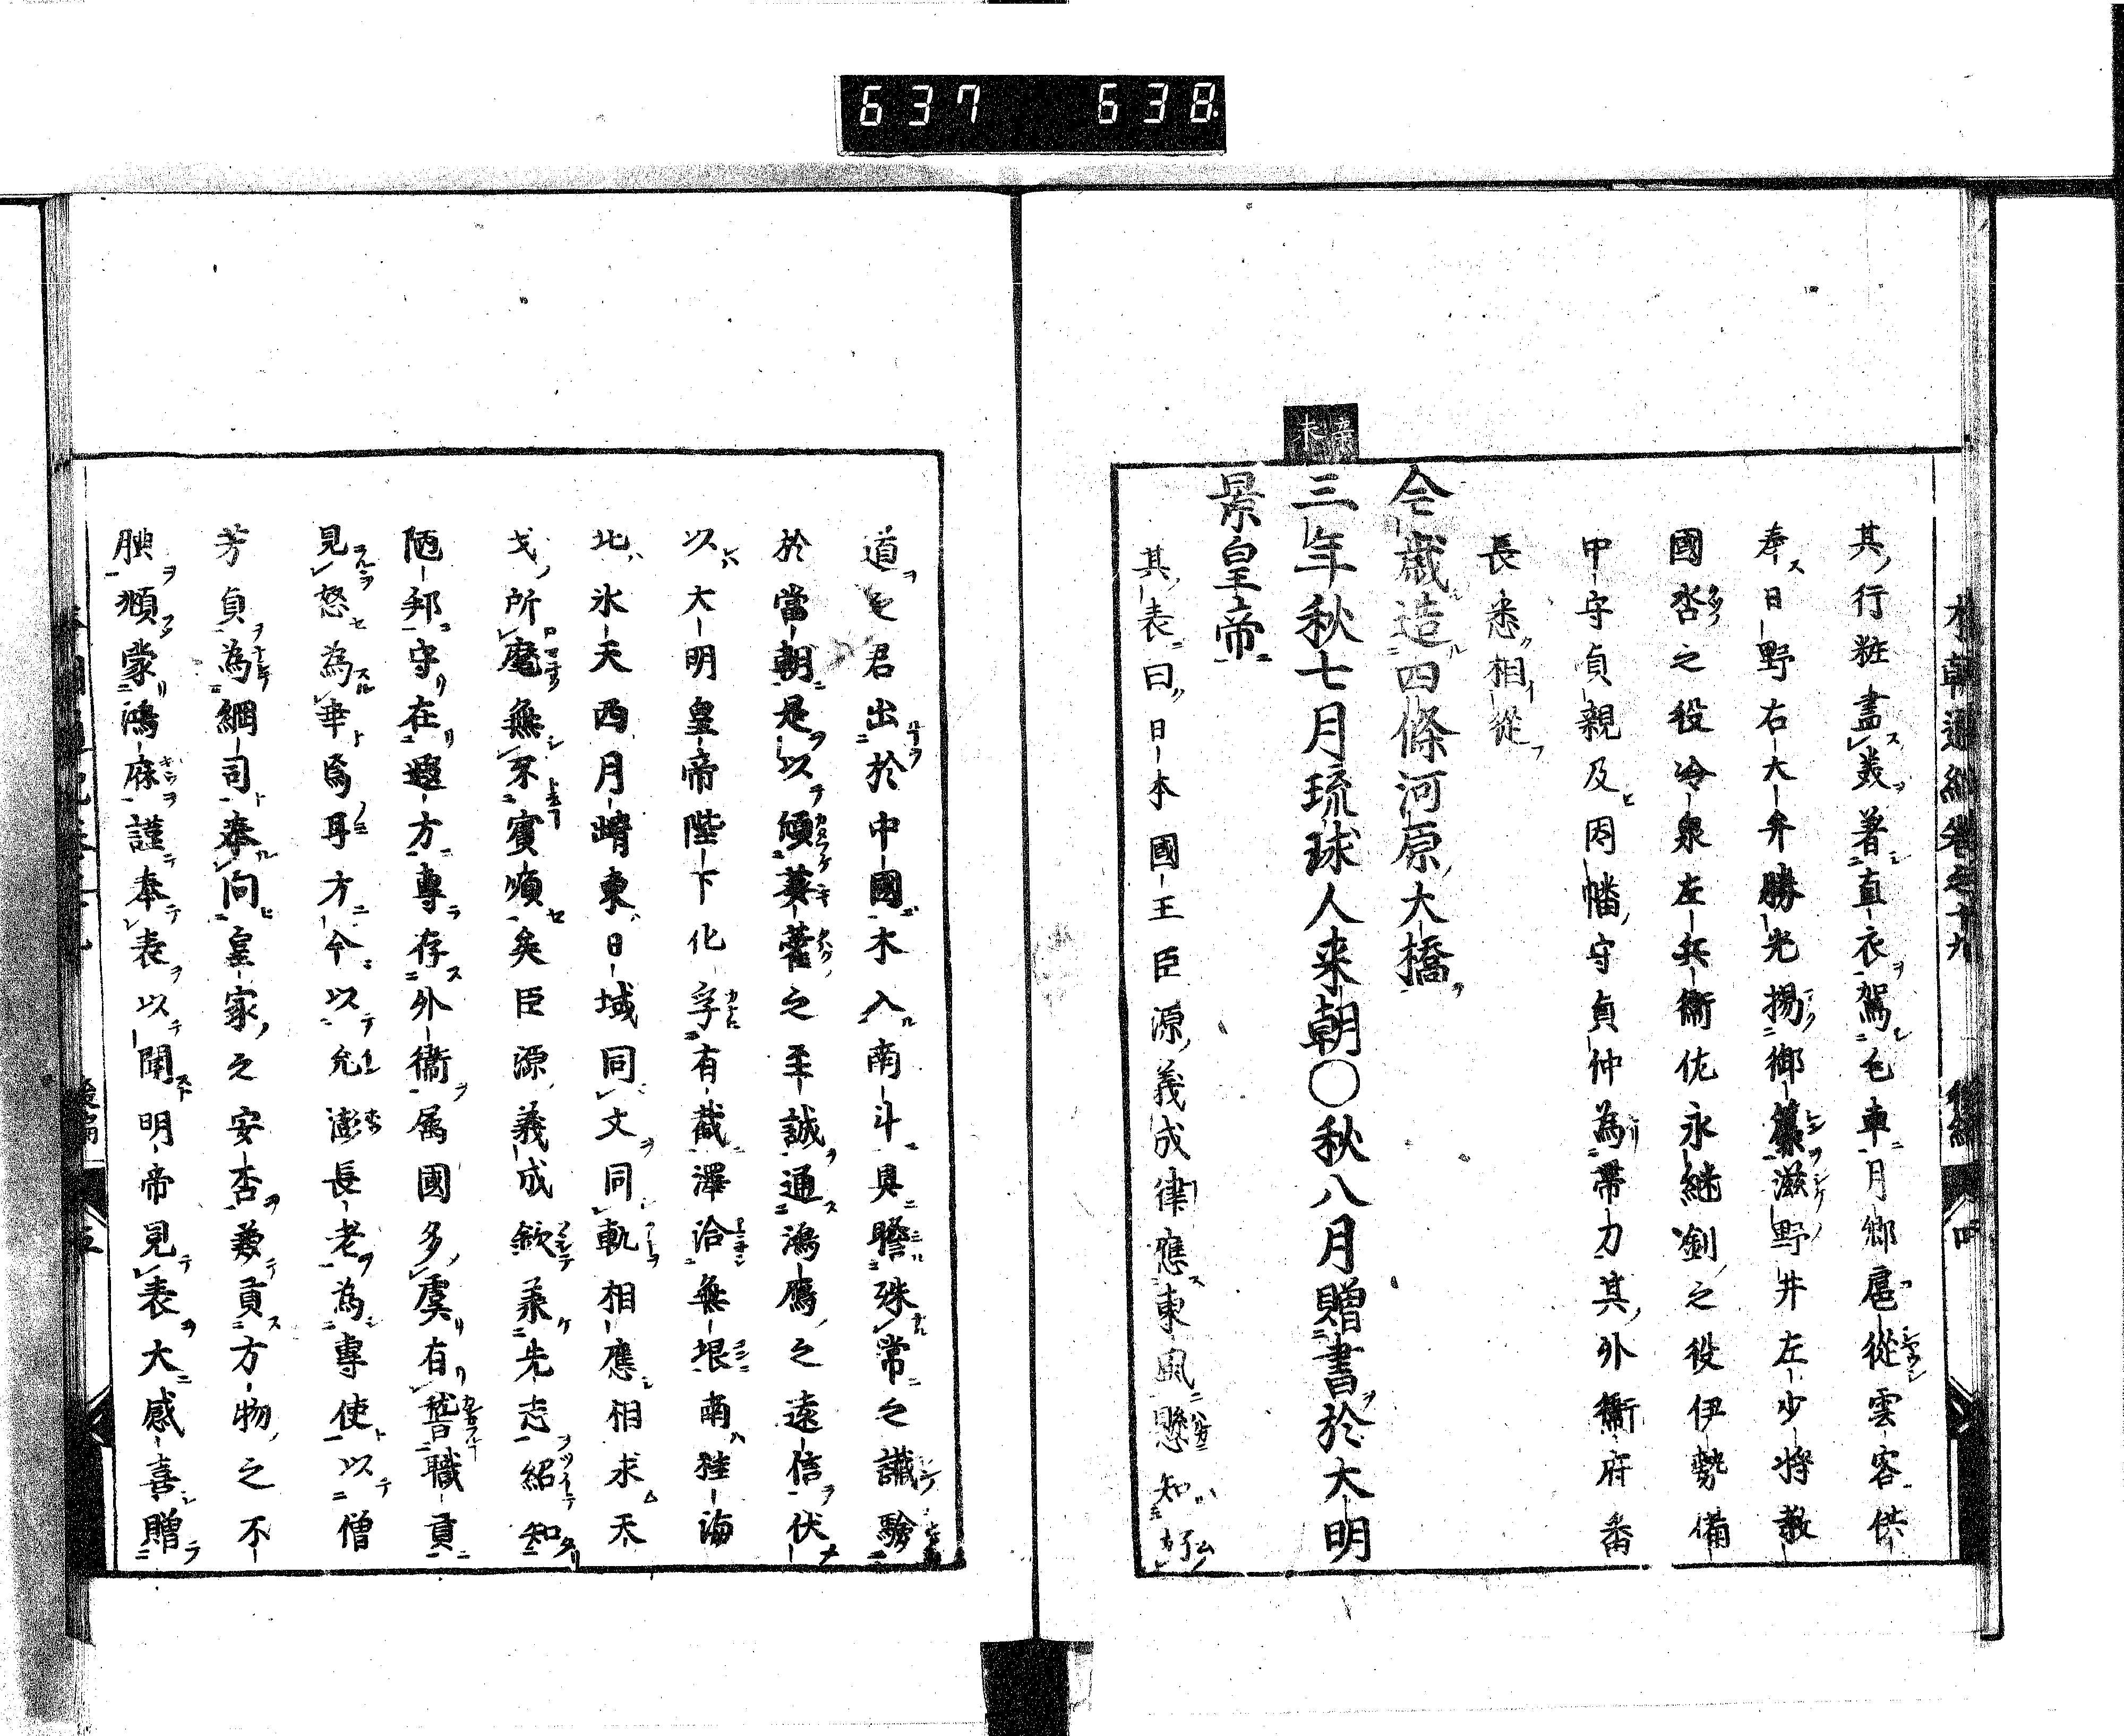 637 638
其行粧盡美著直衣駕毛車月卿扈從雲客供
奉日野右大弁勝光揚御簾滋野井左少将教
國沓之役冷泉左兵衞佐永継劍之役伊勢備
中守貞親及因幡守貞仲為帶刀其外衞府番
長悉相從
今歳造四條河原大橋
辛未
三年秋七月琉球人来朝〇秋八月贈書於大明
景皇帝
其表曰日本國王臣源義成律應東風懸知
道之君出於中國木入南斗具瞻殊常之讖驗
於當朝是以傾葵藿之至誠通鴻鴈之遠信伏
以大明皇帝陛下化孚有截澤洽無垠南狴海
北氷天西月㟙東日域同文同軌相應相求天
戈所麾無不賓順矣臣源義成欽承先志紹知
陋邦守在遐方專存外衞属國多虞有稽職貢
見怒為幸焉耳方今以允澎長老為專使以僧
芳貞為綱司奉問皇家之安否兼貢方物之不
腆願蒙鴻庥謹奉表以聞明帝見表大感喜贈